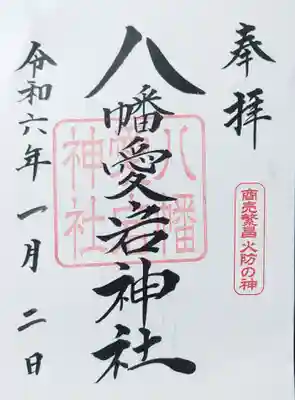 奉拝
商売繁昌 火防の神
八幡愛宕神社
八幡
愛宕
神社
令和六年一月二日